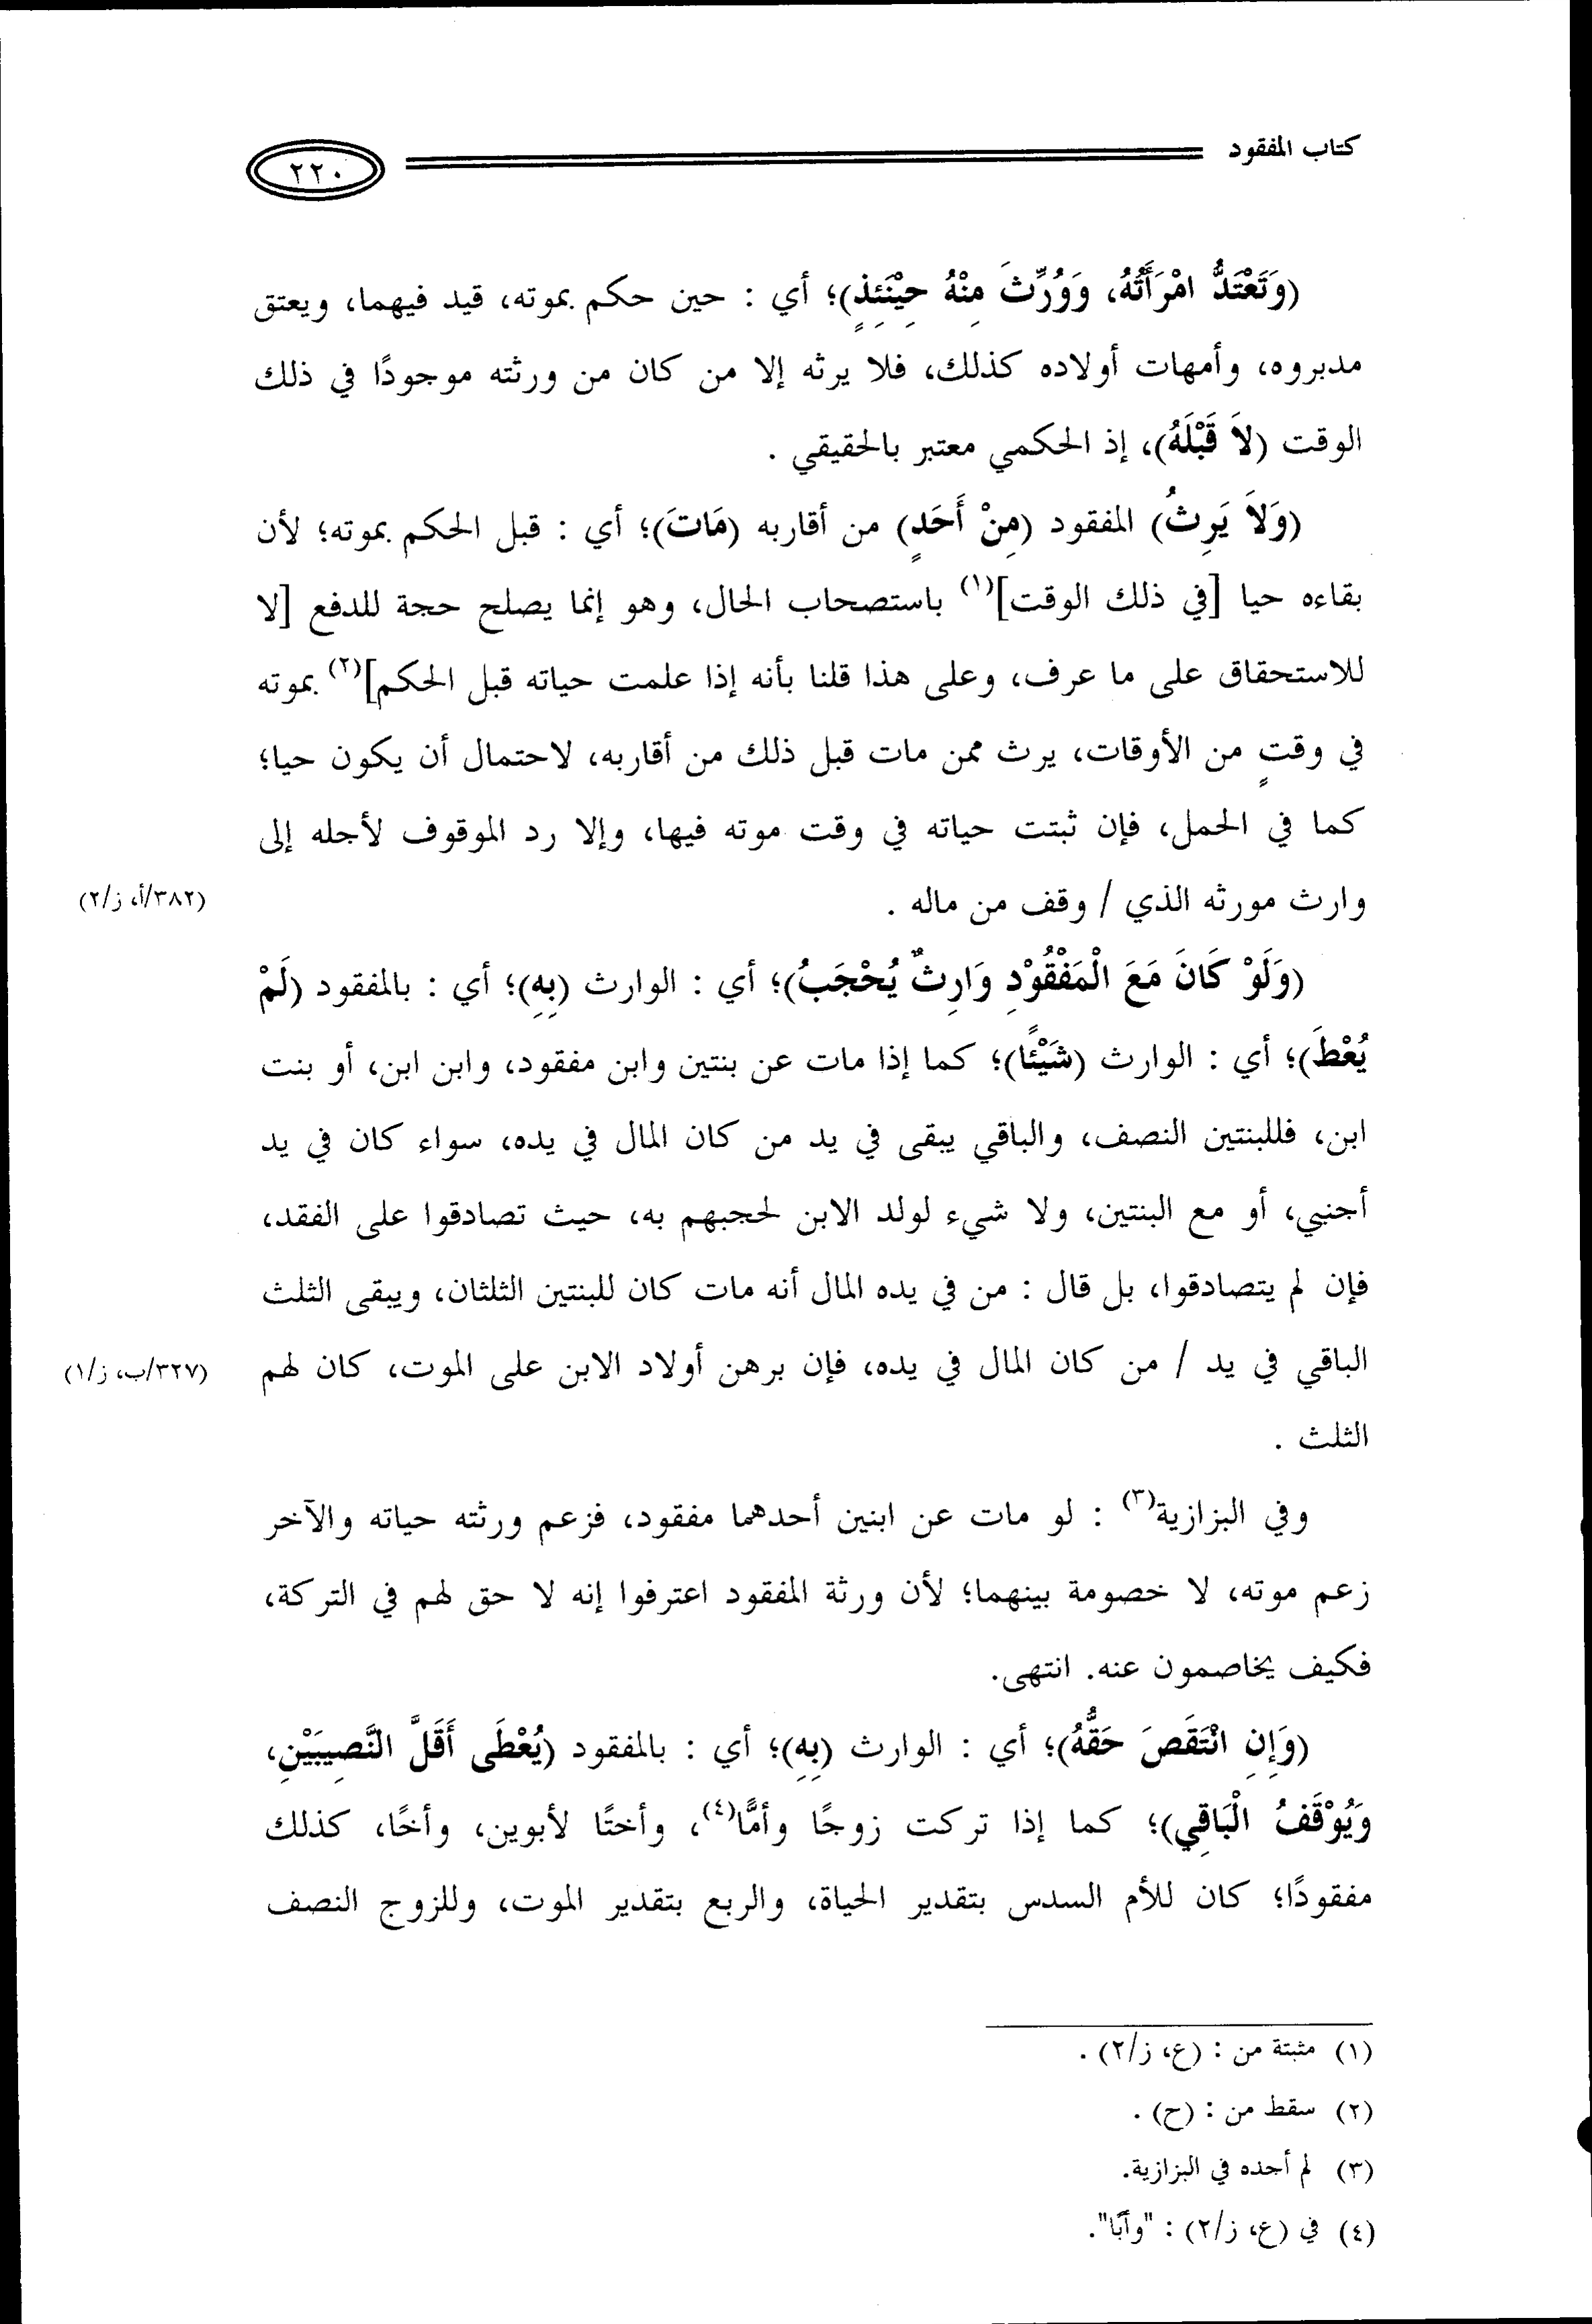 كتاب المفقود
٢٢٠
(وَتَعْتَدُّ امْرَأَتُهُ، وَوُرِّثَ مِنْهُ حِيْنَئِذٍ)؛ أي : حين حكم بموته، قيد فيهما، ويعتق
مدبروه، وأمهات أولاده كذلك، فلا يرثه إلا من كان من ورثته موجودًا في ذلك
الوقت (لاَ قَبْلَهُ)، إذ الحكمي معتبر بالحقيقي .
(وَلاَ يَرِثُ) المفقود (مِنْ أَحَدٍ) من أقاربه (مَاتَ)؛ أي : قبل الحكم بموته؛ لأن
بقاءه حيا [في ذلك الوقت](١) باستصحاب الحال، وهو إنما يصلح حجة للدفع [لا
للاستحقاق على ما عرف، وعلى هذا قلنا بأنه إذا علمت حياته قبل الحكم](٢) بموته
في وقتٍ من الأوقات، يرث ممن مات قبل ذلك من أقاربه، لاحتمال أن يكون حيا؛
كما في الحمل، فإن ثبتت حياته في وقت موته فيها، وإلا رد الموقوف لأجله إلى
وارث مورثه الذي / وقف من ماله .
(٣٨٢/أ، ز/٢)
(وَلَوْ كَانَ مَعَ الْمَفْقُوْدِ وَارِثٌ يُحْجَبُ)؛ أي : الوارث (بِهِ)؛ أي : بالمفقود (لَمْ
يُعْطَ)؛ أي : الوارث (شَيْئًا)؛ كما إذا مات عن بنتين وابن مفقود، وابن ابن، أو بنت
ابن، فللبنتين النصف، والباقي يبقى في يد من كان المال في يده، سواء كان في يد
أجنبي، أو مع البنتين، ولا شيء لولد الابن لحجبهم به، حيث تصادقوا على الفقد،
فإن لم يتصادقوا، بل قال : من في يده المال أنه مات كان للبنتين الثلثان، ويبقى الثلث
الباقي في يد / من كان المال في يده، فإن برهن أولاد الابن على الموت، كان لهم
(٣٢٧/ب، ز/١)
الثلث .
وفي البزازية(٣) : لو مات عن ابنين أحدهما مفقود، فزعم ورثته حياته والآخر
زعم موته، لا خصومة بينهما؛ لأن ورثة المفقود اعترفوا إنه لا حق لهم في التركة،
فكيف يخاصمون عنه. انتهى.
(وَإِنِ انْتَقَصَ حَقُّهُ)؛ أي : الوارث (بِهِ)؛ أي : بالمفقود (يُعْطَى أَقَلَّ النَّصِيبَيْنِ،
وَيُوْقَفُ الْبَاقِي)؛ كما إذا تركت زوجًا وأمًّا(٤)، وأختًا لأبوين، وأخًا، كذلك
مفقودًا؛ كان للأم السدس بتقدير الحياة، والربع بتقدير الموت، وللزوج النصف
(١) مثبتة من : (ع، ز/٢) .
(٢) سقط من : (ح) .
(٣) لم أجده في البزازية.
(٤) في (ع، ز/٢) : "وأبًا".